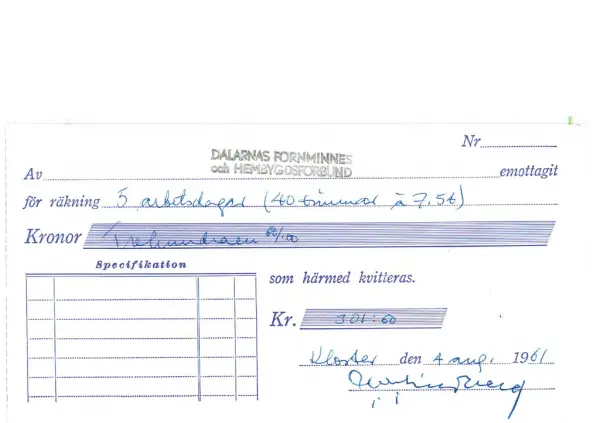 Nr
DALARNAS FORNMINNES
och HEMBYGDSFÖRBUND
Av emottagit
för räkning 5 arbetsdagar (40 timmar à 7.54)
Kronor Trehundraen 60/100
Specifikation
som härmed kvitteras.
Kr. 301:60
Kloster den 4 aug. 1961
Berg